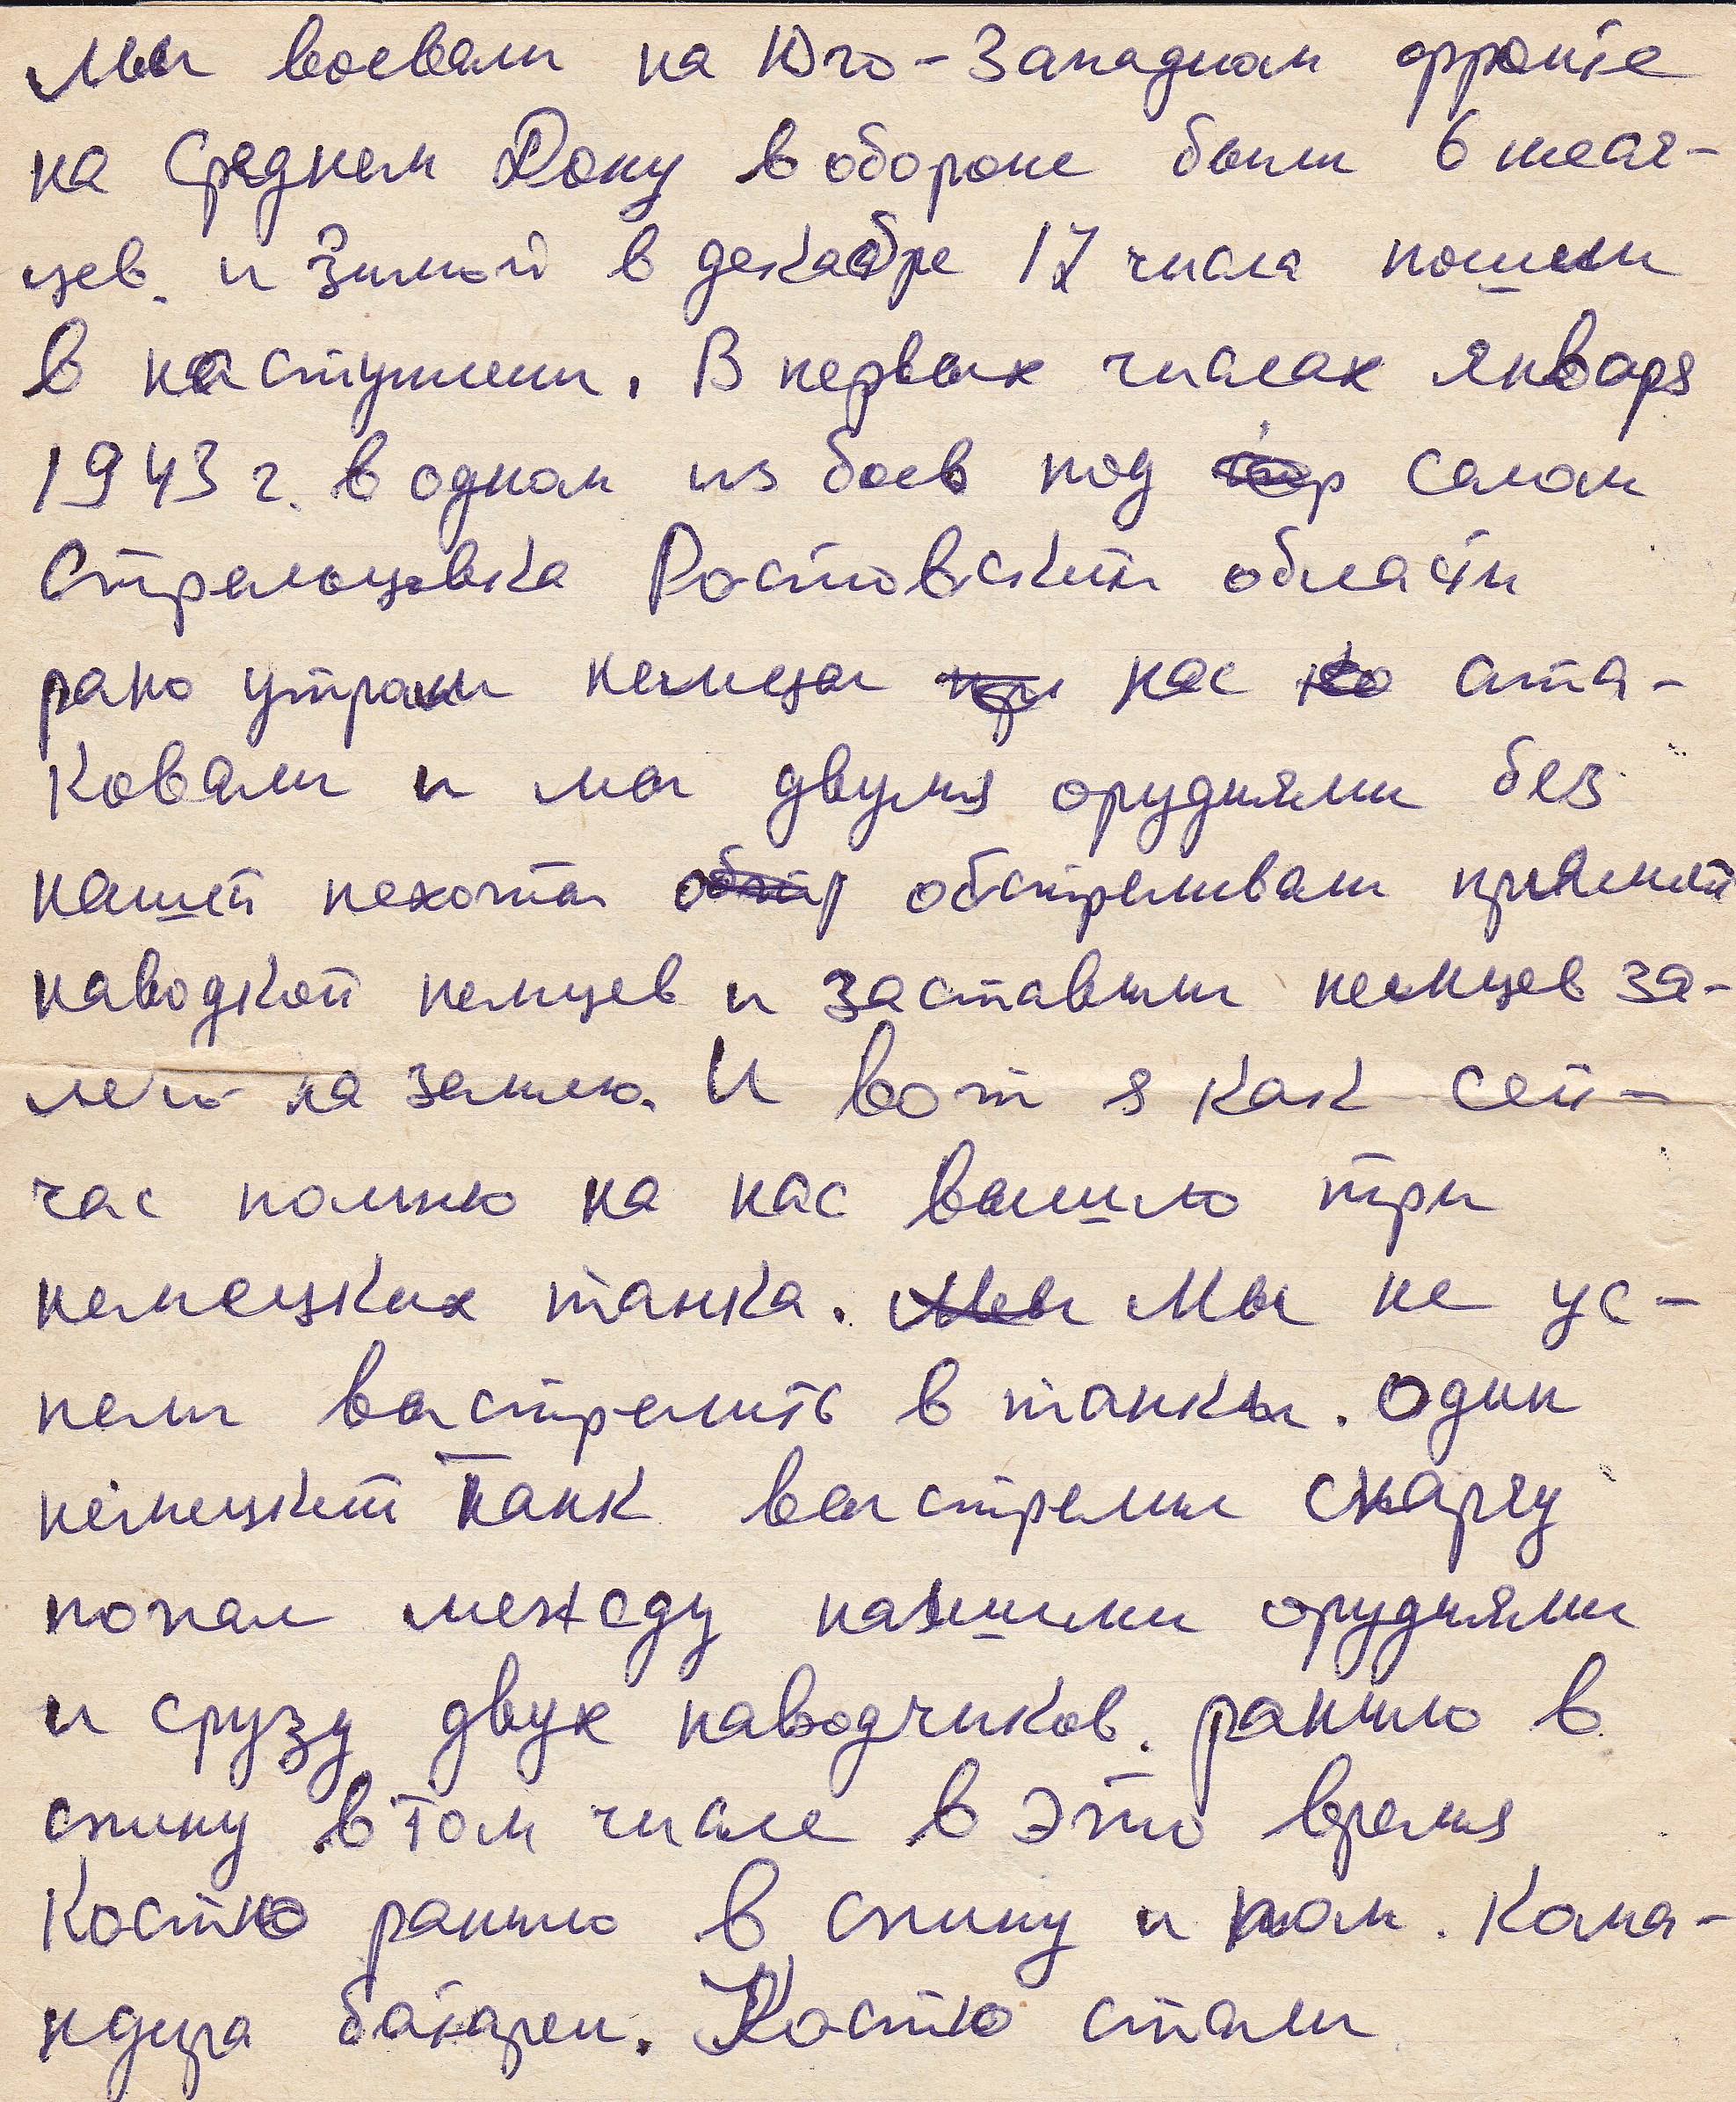 Мы воевали на Юго-Западном фронте
на Среднем Дону в обороне были 6 меся-
цев. и Зимой в декабре 17 числа пошли
в наступлени. В первых числах января
1943 г. в одном из боев под селом
Стрельцовка Ростовский области
рано утром немцы нас ата-
ковали и мы двумя орудиями без
нашей пехоты обстреливали прямой
наводкой немцев и заставили немцев за-
лечь на землю. И вот я как сей-
час помню на нас вышло три
немецких танка. Мы не ус-
пели выстрелить в танки. Один
немецкий танк выстрелил снаряд
попал между нашими орудиями
и срузу двух наводчиков. ранило в
спину в том числе в это время
Костю ранило в спину и пом. Кома-
ндира батареи. Костю стали